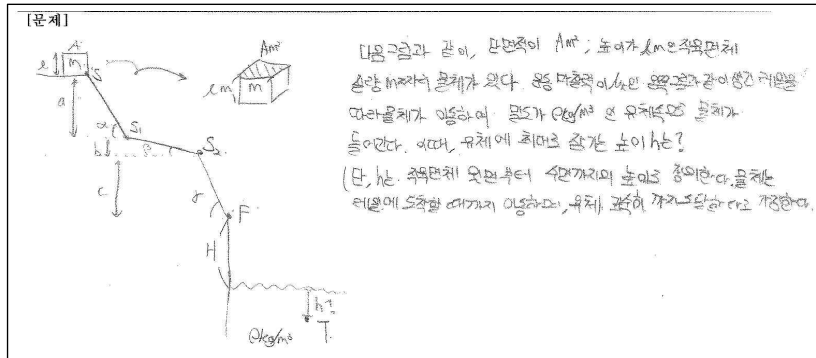 [문제]
다음 그림과 같이, 단면적이 Am², 높이가 lm인 직육면체
질량 m짜리 물체가 있다. 운동 마찰력이 인 왼쪽 그림과 같이 생긴 레일을
따라 물체가 이동하여 밀도가 ρkg/m³ 인 유체속으로 물체가
들어간다. 이때, 유체에 최대로 잠기는 높이 h는?
(단, h는 직육면체 윗면부터 수면까지의 높이로 정의한다. 물체는
레일에 도착할 때까지 이동하며, 유체 까지 도달한다고 가정한다.
A
l
m
S
a
α
S₁
b
β
S₂
c
γ
F
H
h?
T
ρkg/m³
Am²
lm
m